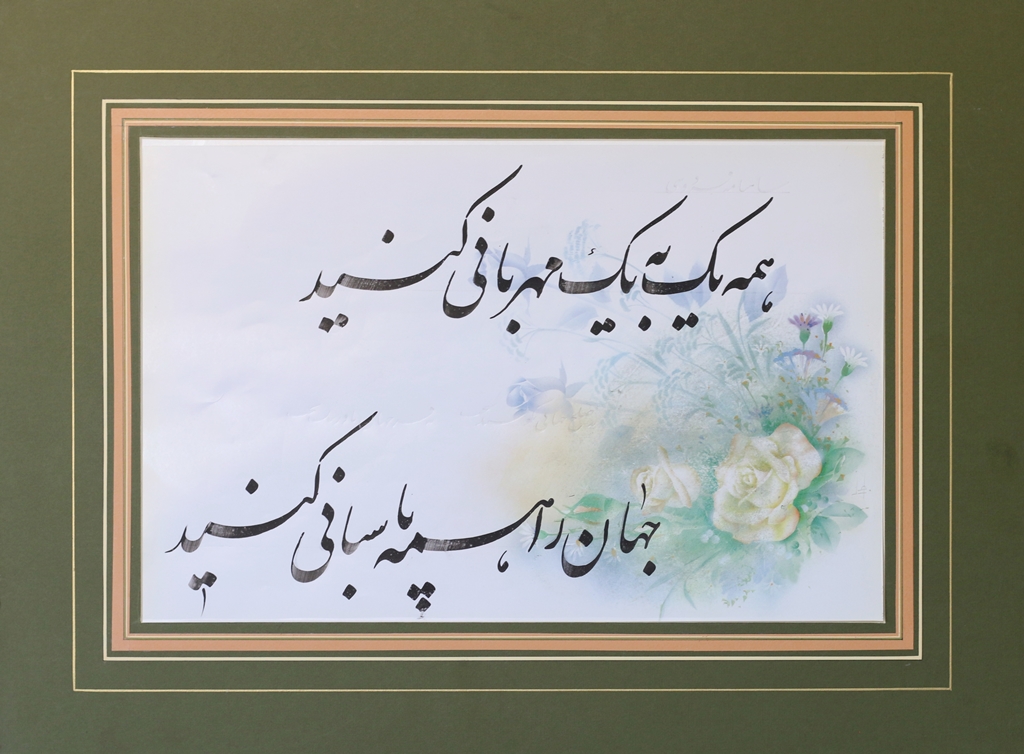 همه یک به یک مهربانی کنید
جهان را همه پاسبانی کنید